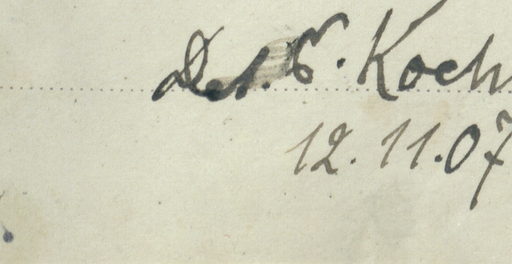 Det. G. Koch
12.11.07